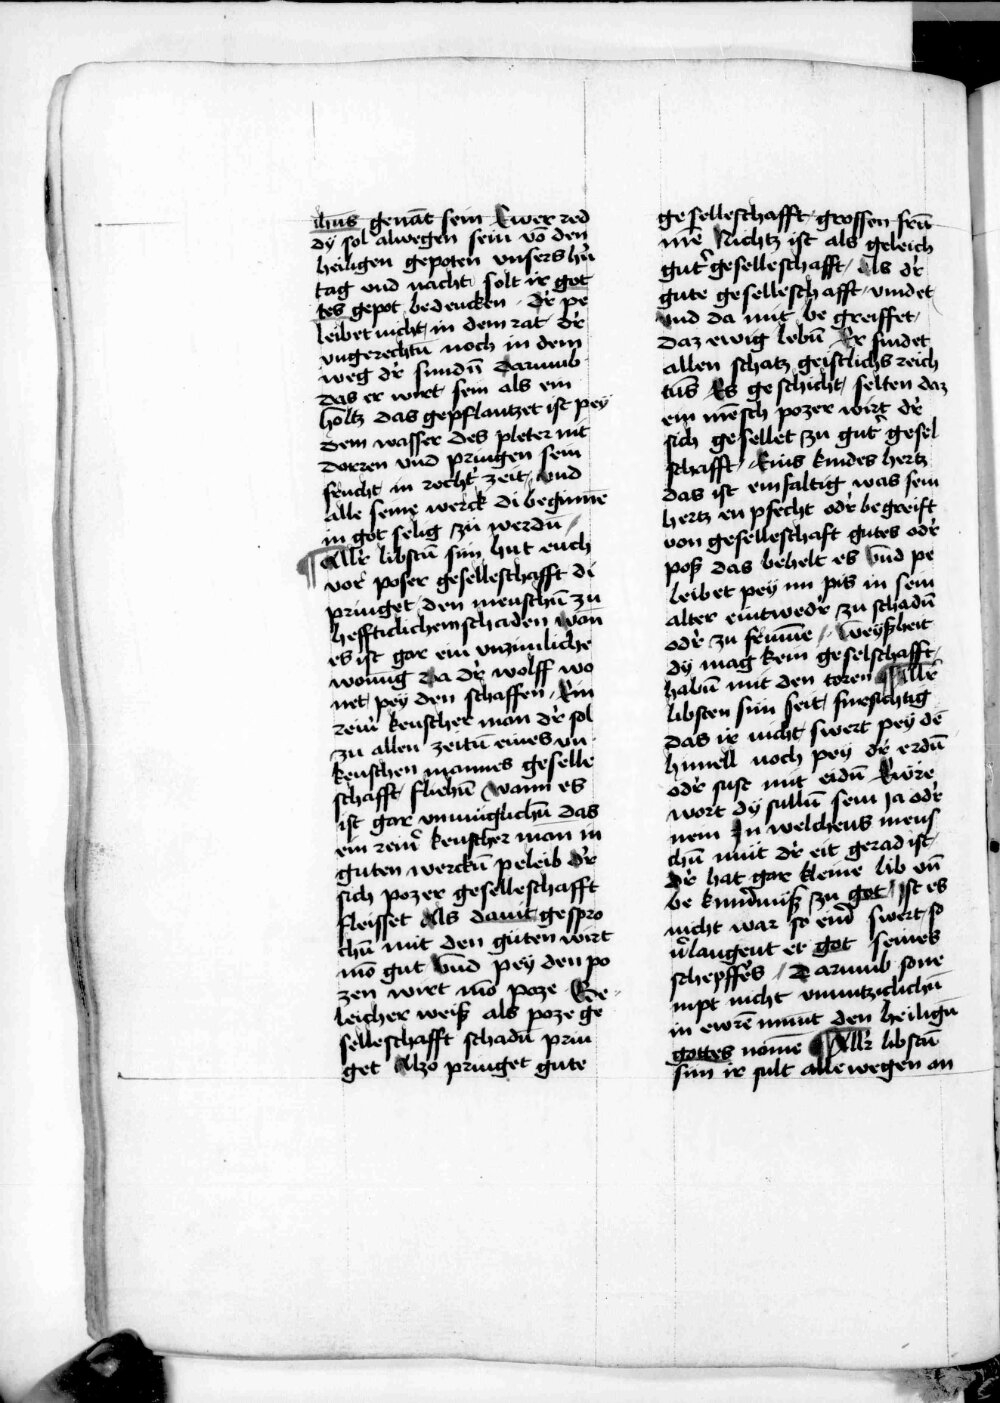 ihūs genāt sein Ewer red
dy sol alwegen sein vō den
heiligen gepoten vnsers hr̄n
tag vnd nacht solt ir got
tes gepot bedencken · dr̄ pe
leibet nicht in dem rat dr̄
vngerechtn̄ noch in dem
weg dr̄ sundn̄ Darumb
das er wirt sein als ein
holtz das gepflantzet ist pey
dem wasser des pleter nit
dorren vnd pringen sein
frucht in rechtr̄ zeit vnd
alle seine werck di beginnē
in got selig zu werdn̄ /
¶ Allr̄ libstn̄ sun hut euch
vor poser geselleschafft di
pringet den menschn̄ zu
heffticlichem schaden wan̄
es ist gar ein vnzimliche
wonūg da dr̄ wolff wo
net pey den schaffen · Ein
reinr̄ keuscher man dr̄ sol
zu allen zeitn̄ eines vn
keuschen mannes geselle
schafft fliehn̄ wann es
ist gar vnmüglichn̄ das
ein reinr̄ keuscher man in
guten werckn̄ peleib dr̄
sich pozer geselleschafft
fleisset Als dauit gespro
chn̄ mit den guten wirt
mā gut vnd pey den po
zen wirt mā poze Ge
leicher weiß als poze ge
selleschafft schadn̄ prin
get Alzo pringet gute
geselleschafft grossen frū
mē Nichtz ist als geleich
gutr̄ geselleschafft / Als dr̄
gute geselleschafft vindet
vnd da mit be greiffet
daz ewig lebn̄ Er findet
allen schatz geistlichs reich
tūs Es geschicht selten daz
ein mēsch pozer wirt dr̄
sich gesellet zu gutr̄ gesel
schafft / Eins kindes hertz
das ist einfaltig was sein
hertz enpfecht odr̄ begreift
von geselleschaft gutes odr̄
poß das behelt es vnd pe
leibet pey im pis in sein
alter eintwedr̄ zu schadn̄
odr̄ zu frumē / Weyßheit
dy mag kein geselschafft
habn̄ mit den toren ¶ Allr̄
libsten sun seit fursichtig
das ir nicht swert pey dē
himell noch pey dr̄ erdn̄
odr̄ sust mit eidn̄ Ewre
wort dy sulln̄ sein ja odr̄
nein In welchens mens
chn̄ mūt dr̄ eit gerad ist
dr̄ hat gar kleine lib vn̄
be kūndnuß zu got Ist es
nicht war so eur̄ swert so
vr̄laugent er got seines
schepffers / Darumb so ne
mpt nicht vnnutziclichn̄
in ewrē munt den heilign̄
gottes namē ¶ Allr̄ libstn̄
sun ir sult allewegen an